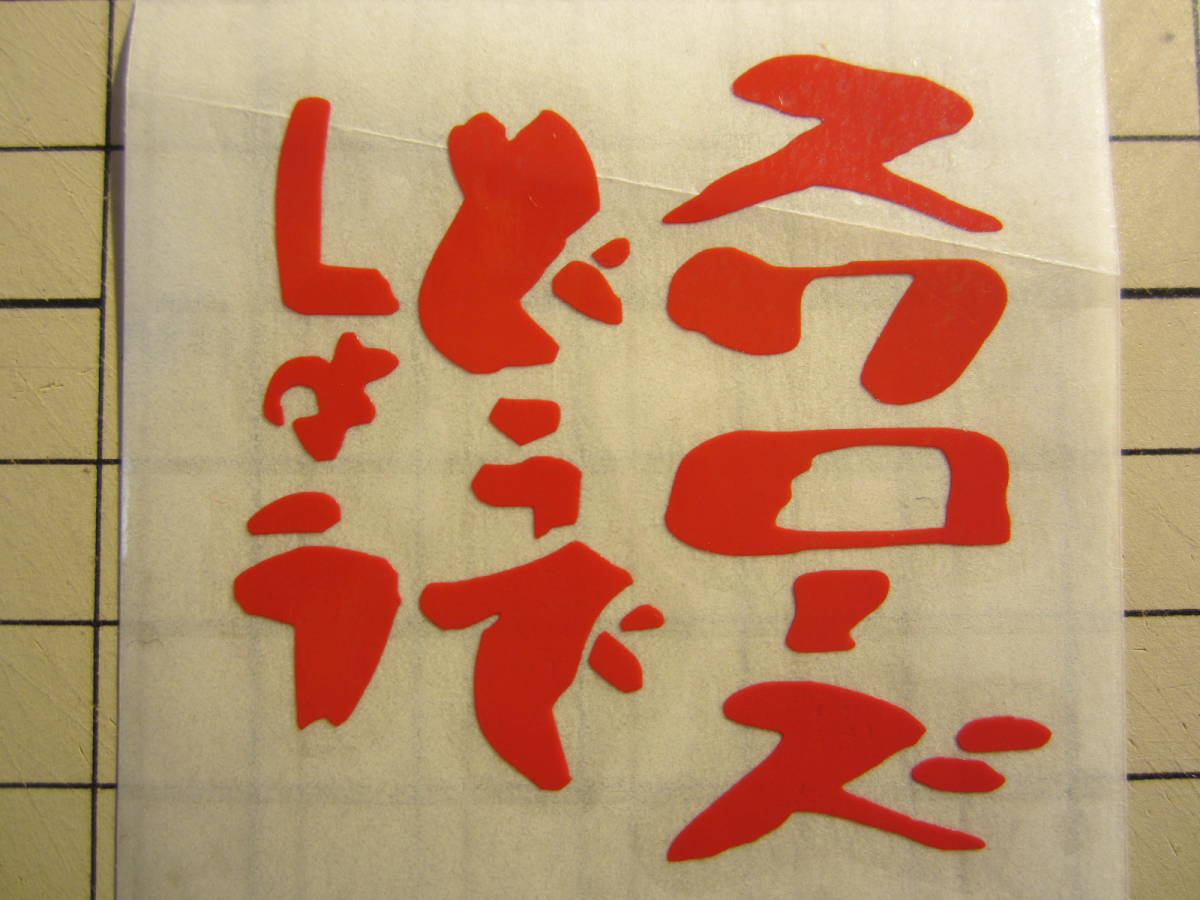 スワローズ
どうで
しょう